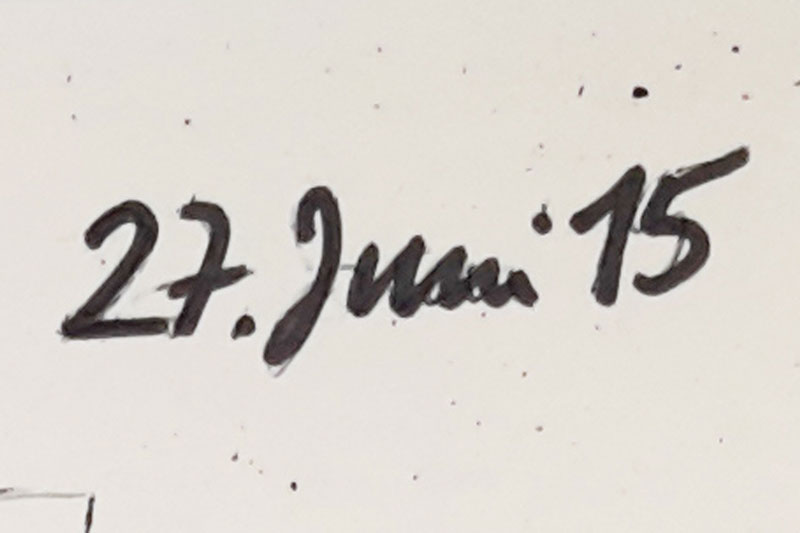 27. Juni 15